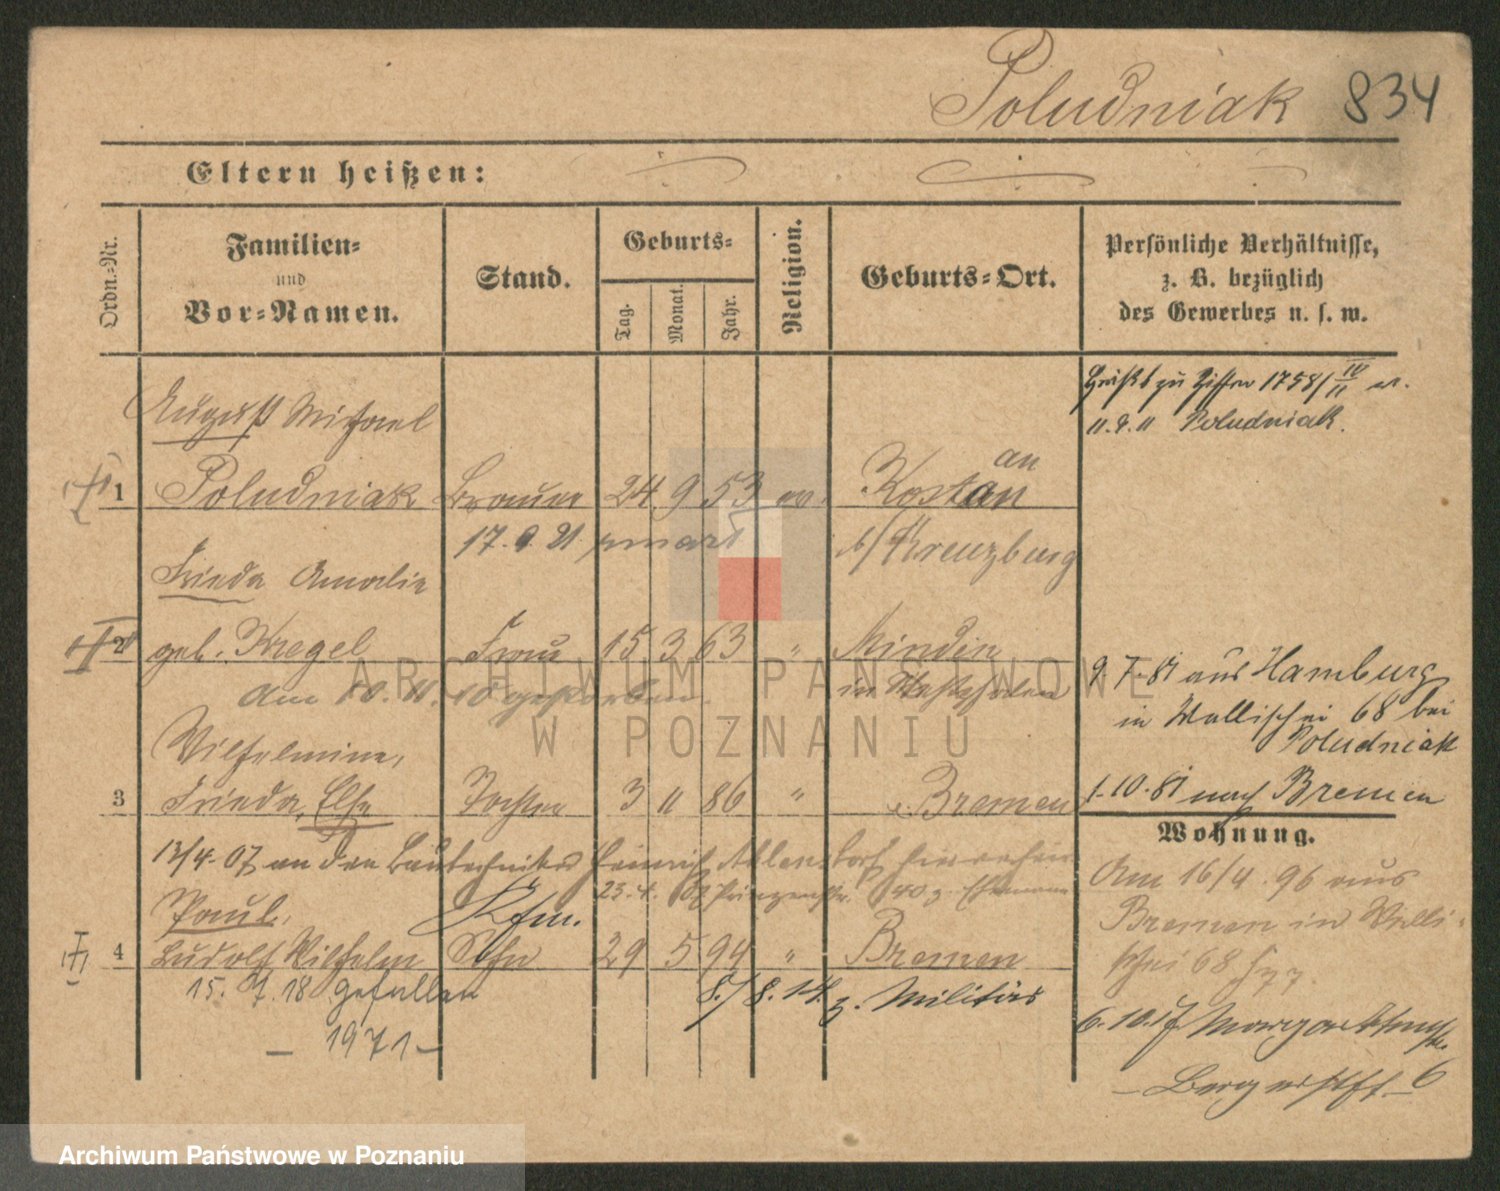 Poludniak 834
Eltern heißen:
Ordn.-Nr.
Familien-
und
Vor-Namen.
Stand.
Geburts-
Tag.
Monat.
Jahr.
Religion.
Geburts-Ort.
Persönliche Verhältnisse,
z. B. bezüglich
des Gewerbes u. s. w.
August Michael
1 Poludniak Brauer 24. 9 53 ev. Kostan
an
17. 9. 21
b/ Kreuzburg
Frieda Amalie
2 geb. Kregel Frau 15 3 63 " Minden
am 10. 11. 10 gestorben.
in Westfalen
Wilhelmine,
3 Frieda, Else Tochter 3 11 86 " Bremen
13/4. 07 an den Bautechniker Heinrich
Paul, Kfm.
4 Ludolf Wilhelm Sohn 29 5 94 " Bremen
15. 7. 18 gefallen
8./8. 14. z. Militär
– 1971 –
heißt zu 1758/
Poludniak.
9. 7. 81 aus Hamburg
in Wallischei 68 bei
Poludniak
1. 10. 81 nach Bremen
Wohnung.
Am 16/4. 96 aus
Bremen in Walli-
schei 68
6. 10. 17.
6
ARCHIWUM PAŃSTWOWE
W POZNANIU
Archiwum Państwowe w Poznaniu